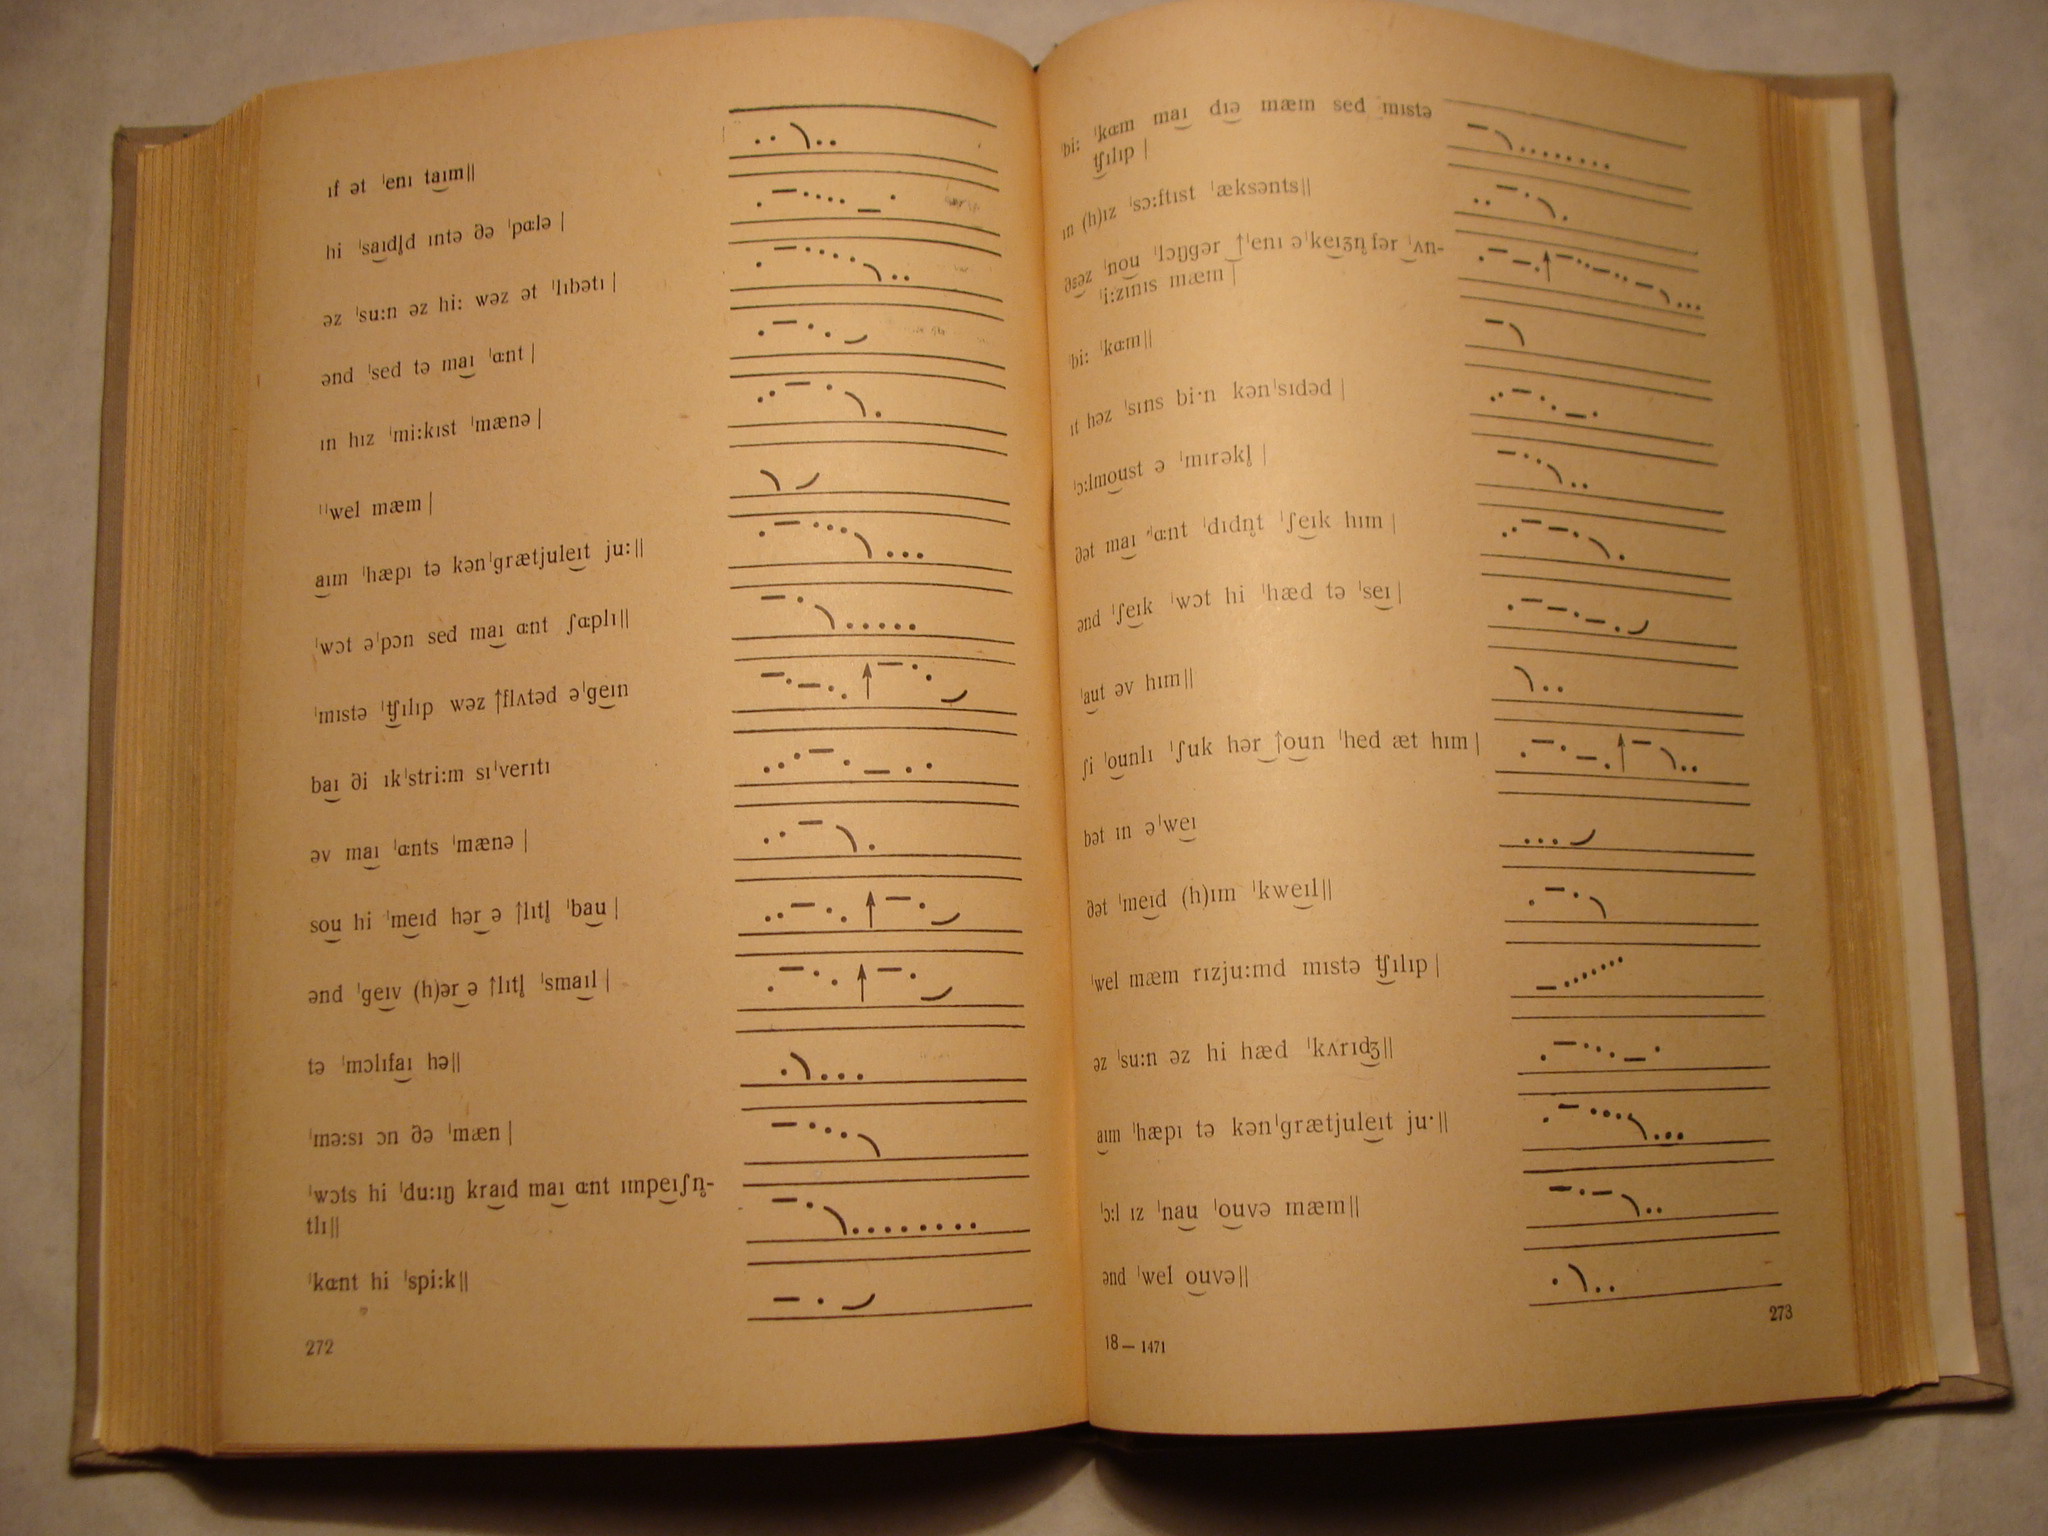 ıf ət ˈenı taı͜m||
hi ˈsaı͜dl̩d ıntə ðə ˈpɑ:lə |
əz ˈsu:n əz hi: wəz ət ˈlıbətı |
ənd ˈsed tə maı͜ ˈɑ:nt |
ın hız ˈmi:kıst ˈmænə |
ˈˈwel mæm |
aı͜m ˈhæpı tə kənˈgrætjuleı͜t ju:||
ˈwɔt əˈpɔn sed maı͜ ɑ:nt ʃɑ:plı||
ˈmıstə ˈtʃ͜ılıp wəz ↑flʌtəd əˈgeı͜n
baı͜ ði ıkˈstri:m sıˈverıtı
əv maı͜ ˈɑ:nts ˈmænə |
sou͜ hi ˈmeı͜d hər͜ ə ↑lıtl̩ ˈbau͜ |
ənd ˈgeı͜v (h)ər͜ ə ↑lıtl̩ ˈsmaı͜l |
tə ˈmɔlıfaı͜ hə||
ˈmə:sı ɔn ðə ˈmæn |
ˈwɔts hi ˈdu:ıŋ kraı͜d maı͜ ɑ:nt ımpeı͜ʃn̩-
tlı||
ˈkɑ:nt hi ˈspi:k||
272
ˈbi: ˈkɑ:m maı͜ dıə͜ mæm sed mıstə
tʃ͜ılıp |
ın (h)ız ˈsɔ:ftıst ˈæksənts||
ðɛə͜z ˈnou͜ ˈlɔŋgər͜ ↑ˈenı əˈkeı͜ʒn̩ fər͜ ˈʌn-
ˈi:zınıs mæm |
ˈbi: ˈkɑ:m||
ıt həz ˈsıns bi·n kənˈsıdəd |
ˈɔ:lmou͜st ə ˈmırəkl̩ |
ðət maı͜ ˈɑ:nt ˈdıdn̩t ˈʃeı͜k hım |
ənd ˈʃeı͜k ˈwɔt hi ˈhæd tə ˈseı͜ |
ˈau͜t əv hım||
ʃi ˈou͜nlı ˈʃuk hər͜ ↑ou͜n ˈhed æt hım |
bət ın əˈweı͜
ðət ˈmeı͜d (h)ım ˈkweı͜l||
ˈwel mæm rızju:md mıstə tʃ͜ılıp |
əz ˈsu:n əz hi hæd ˈkʌrıdʒ͜||
aı͜m ˈhæpı tə kənˈgrætjuleı͜t ju·||
ˈɔ:l ız ˈnau͜ ˈou͜və mæm||
ənd ˈwel ou͜və||
18 — 1471
273